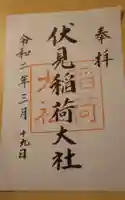 奉拝
伏見稲荷大社
令和二年三月十九日